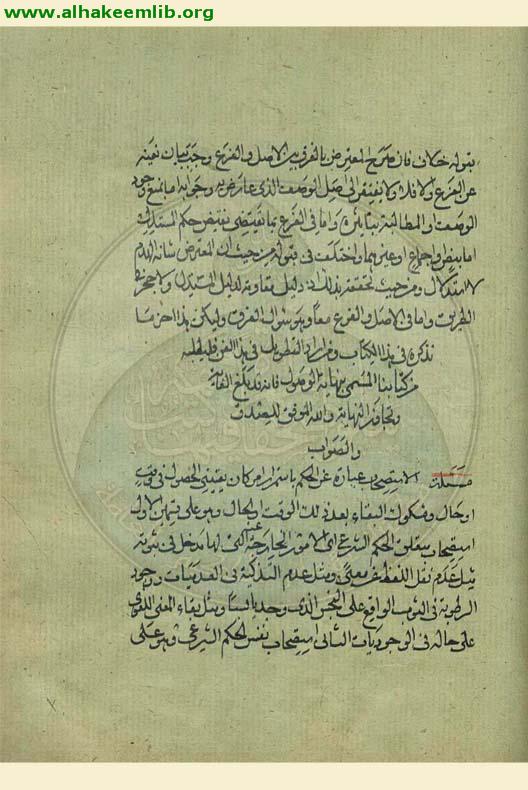 www.alhakeemlib.org
بقوله خلاف فان صرح المعترض بالفرق بين الاصل والفرع وجب بيان نفيه
عن الفرع والا فلا ولا يفتقر الى اصل الوصف الذى عارض به وجوابه اما بمنع وجود
الوصف او المطالبة بتاثيره واما فى الفرع بما يقتضى نقيض حكم المستدل
اما بنص او اجماع او غيرهما واختلف فى قبوله من حيث ان المعترض شانه الهدم
لا الاستدلال ومن حيث تحققه بذلك اذ دليل مقاومة لدليل المستدل ولا حجر فى
الطريق واما فى الاصل والفرع معا وهو سؤال الفرق وليكن هذا اخر ما
نذكره فى هذا الكتاب ومن اراد التطويل فى هذا الفن فليطلبه
من كتابنا المسمى بنهاية الوصول فانه قد بلغ الغاية
وتجاوز النهاية والله الموفق للصدق
والصواب
مسئلة الاستصحاب عبارة عن الحكم باستمرار امر كان يقينى الحصول فى وقت
او حال ومشكوك البقاء بعد ذلك الوقت او الحال وهو على قسمين الاول
استصحاب متعلق الحكم الشرعى اى الامور الخارجة عنه التى لها مدخل فى ثبوته
مثل عدم نقل اللفظ عن معنى ومثل عدم التذكية فى العدميات ووجود
الرطوبة فى الثوب الواقع على النجس الذى وجد يابسا ومثل بقاء المعنى اللغوى
على حاله فى الوجوديات الثانى استصحاب نفس الحكم الشرعى وهو على